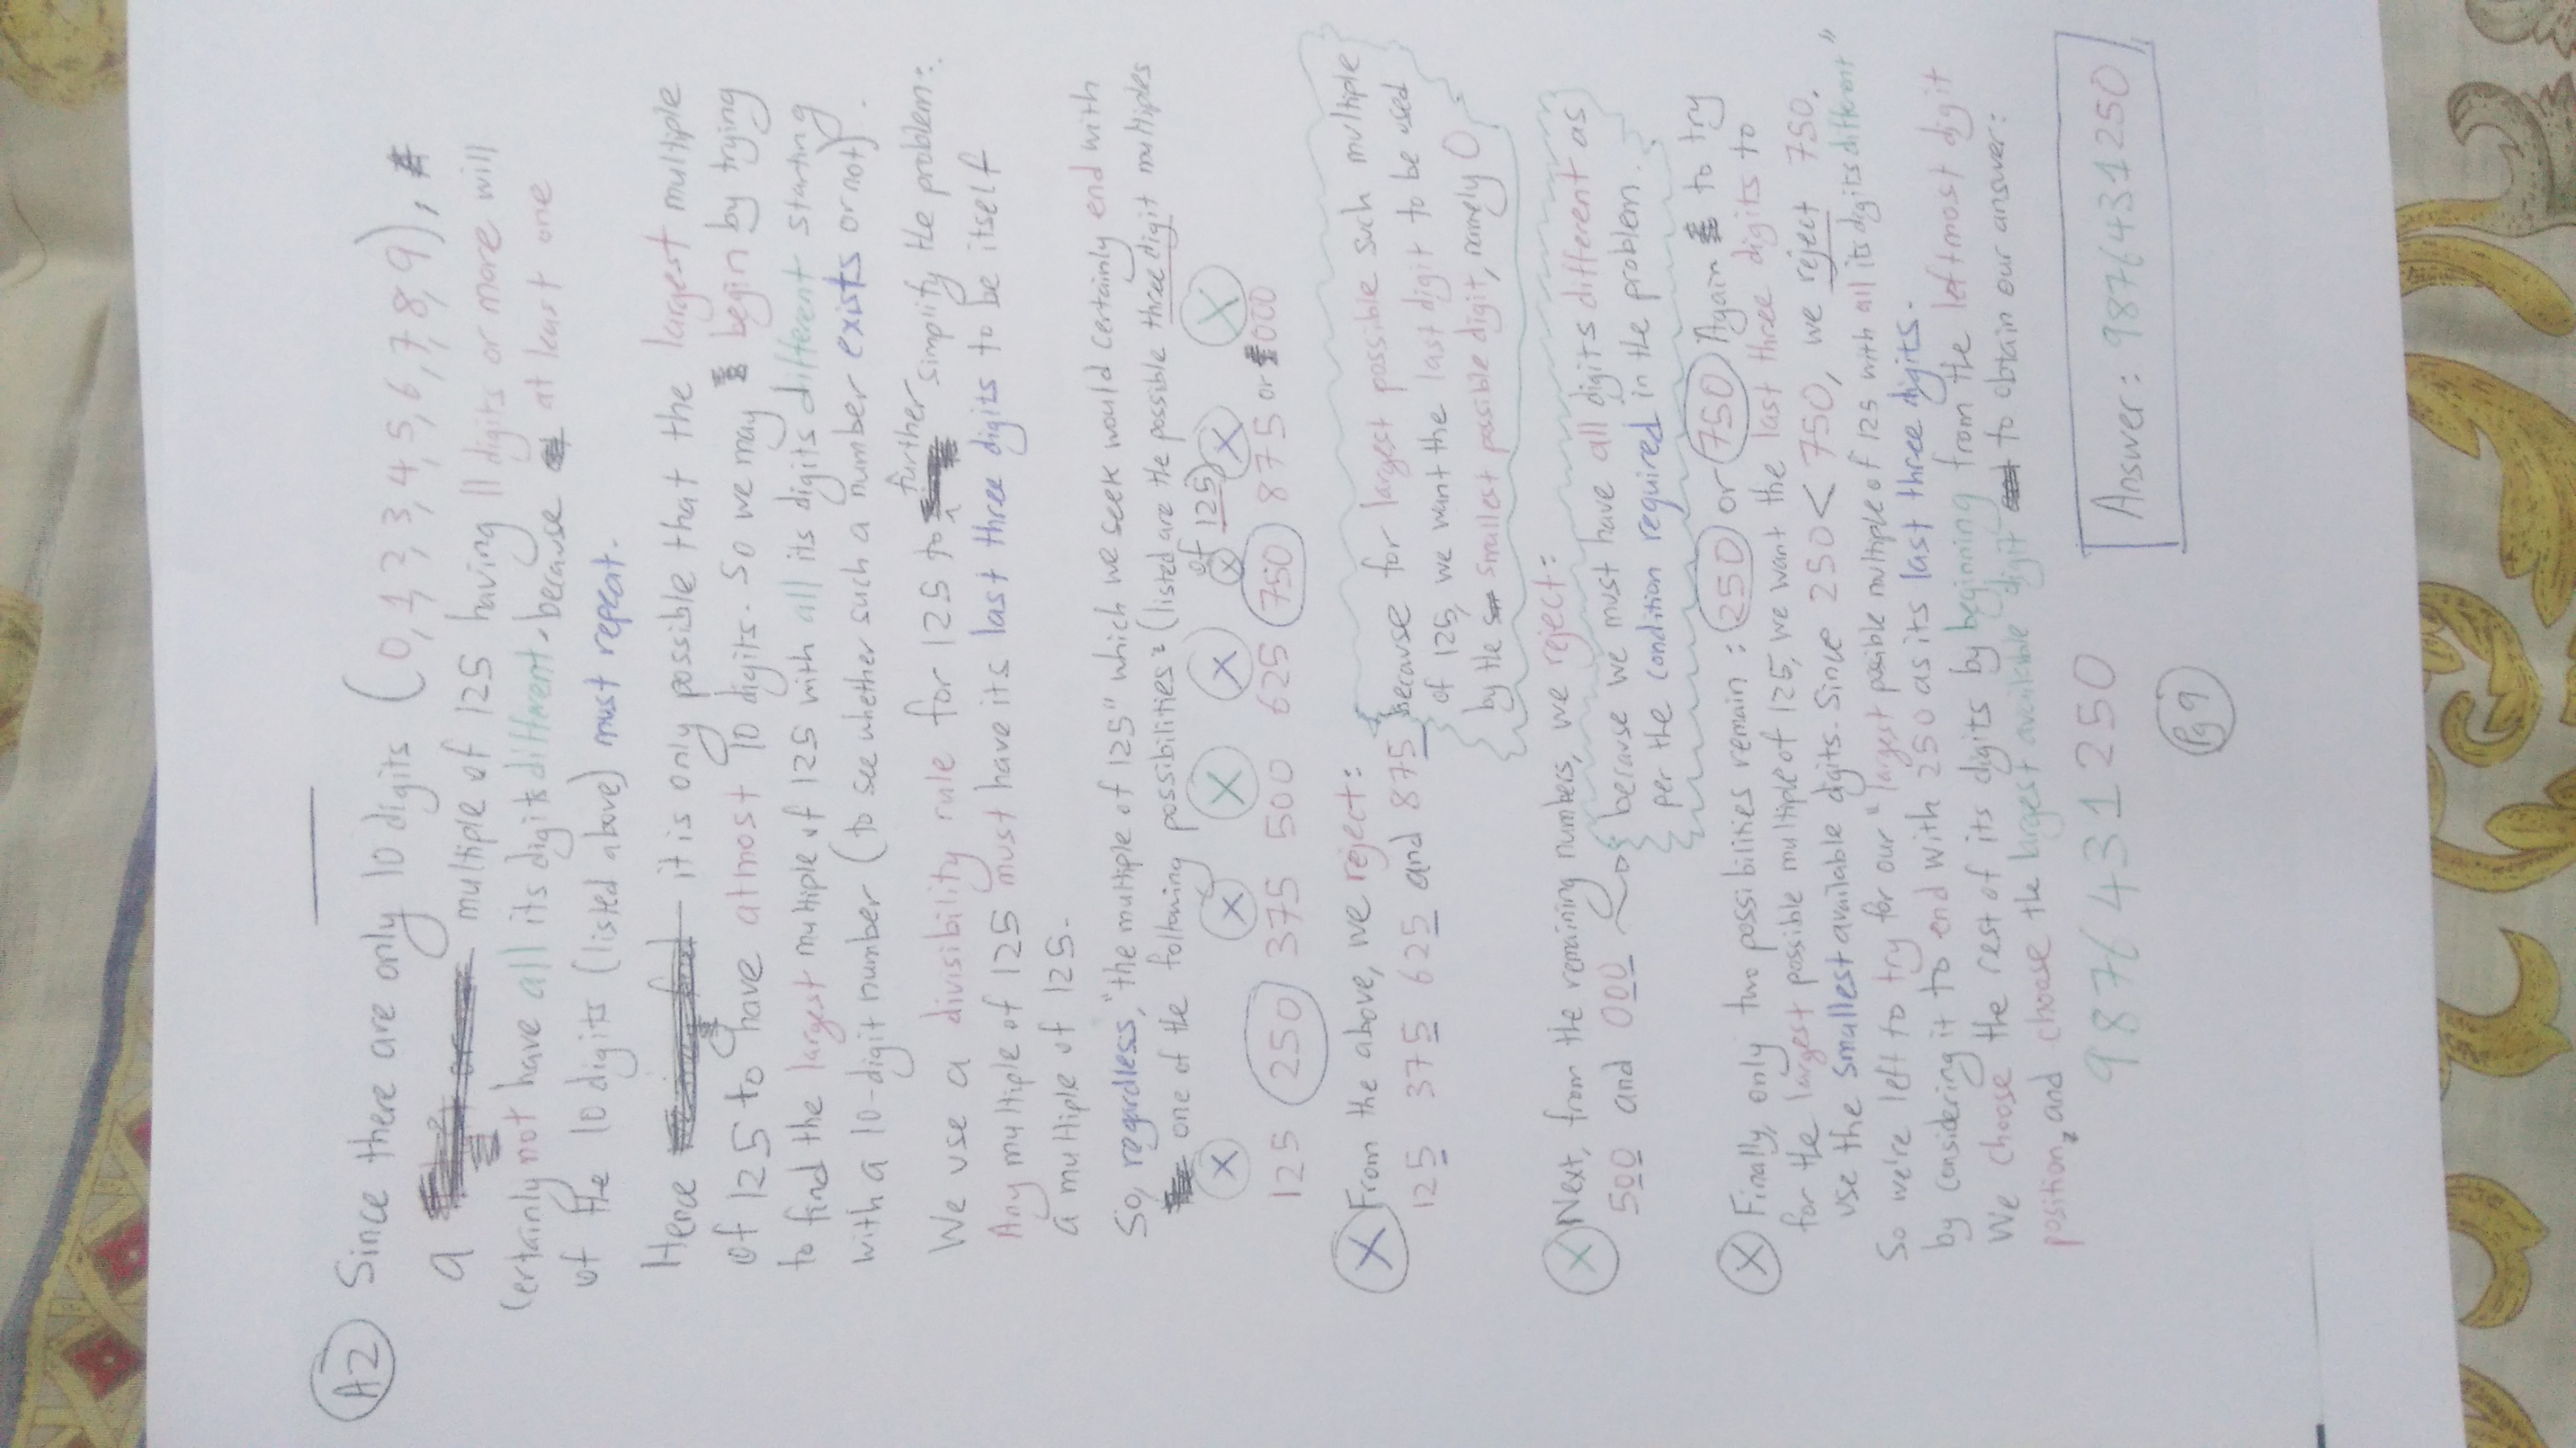 A2 Since there are only 10 digits (0, 1, 2, 3, 4, 5, 6, 7, 8, 9),
a multiple of 125 having 11 digits or more will
certainly not have all its digits different, because at least one
of the 10 digits (listed above) must repeat.
Hence it is only possible that the largest multiple
of 125 to have atmost 10 digits. So we may begin by trying
to find the largest multiple of 125 with all its digits different starting
with a 10-digit number (to see whether such a number exists or not).
We use a divisibility rule for 125 to further simplify the problem:
Any multiple of 125 must have its last three digits to be itself
a multiple of 125.
So, regardless, "the multiple of 125" which we seek would certainly end with
one of the following possibilities: (listed are the possible three digit multiples
of 125)
X X X X X X X
125 250 375 500 625 750 875 or 000
X From the above, we reject:
125 375 625 and 875 because for largest possible such multiple
of 125, we want the last digit to be used
by the smallest possible digit, namely 0
X Next, from the remaining numbers, we reject:
500 and 000 because we must have all digits different as
per the condition required in the problem.
X Finally, only two possibilities remain: 250 or 750 Again to try
for the largest possible multiple of 125, we want the last three digits to
use the smallest available digits. Since 250 < 750, we reject 750.
So we're left to try for our "largest possible multiple of 125 with all its digits different"
by considering it to end with 250 as its last three digits.
We choose the rest of its digits by beginning from the leftmost digit
position, and choose the largest available digit to obtain our answer:
9876431250
Answer: 9876431250
Pg 9